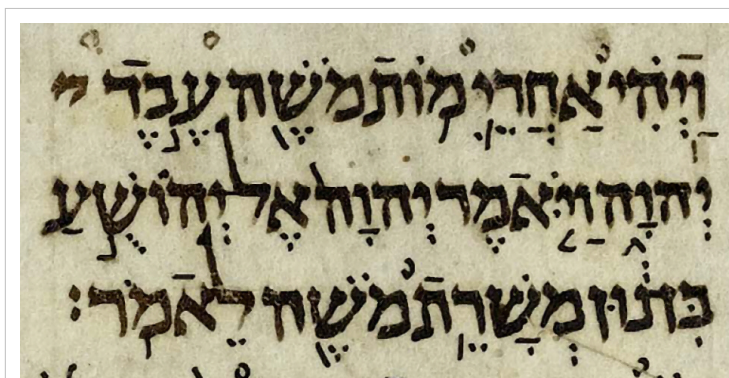 וַיְהִ֗י אַחֲרֵי֙ מ֣וֹת מֹשֶׁ֔ה עֶ֖בֶד י
יְהוָ֑ה וַיֹּ֤אמֶר יְהוָה֙ אֶל־יְהוֹשֻׁ֣עַ
בִּן־נ֔וּן מְשָׁרֵ֥ת מֹשֶׁ֖ה לֵאמֹֽר׃